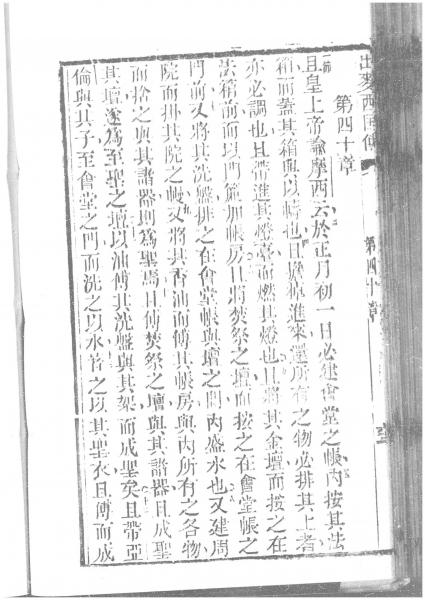 出麥西國傳
第四十章
第四十章
一節
且皇上帝諭摩西云於正月初一日必建會堂之帳內按其法
箱而蓋其箱與以幃也且將棹進來還所有之物必排其上者
亦必調也且帶進其燈臺而燃其燈也且將其金壇而按之在
法箱前而以門簾加帳房且將焚祭之壇而按之在會堂帳之
門前又將其洗盤排之在會堂帳與壇之間內盛水也又建周
院而排其院之幔又將其香油而傅其帳房與內所有之各物
而捨之與其諸器則為聖焉且傅焚祭之壇與其諸器且成聖
其壇遂為至聖之壇以油傅其洗盤與其架而成聖矣且帶亞
倫與其子至會堂之門而洗之以水穿之以其聖衣且傅而成